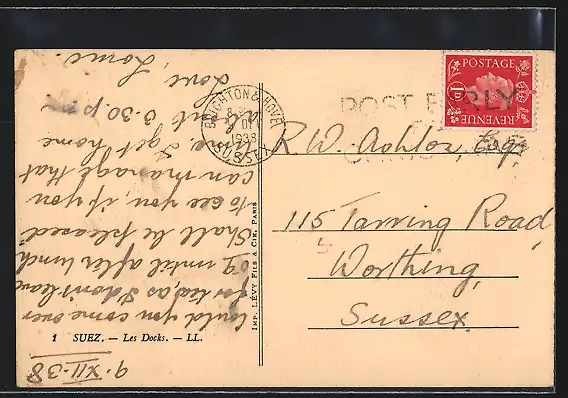 9.XII.38
Could you come over
for tea, as I don't leave
until after lunch
Shall be pleased
to see you, if you
can manage that
time, I get home
about 3.30.p.m
Love, Lorne.
1 SUEZ. — Les Docks. — LL.
IMP. LÉVY FILS & CIE, PARIS
BRIGHTON & HOVE
1938
SUSSEX
POST EARLY
POSTAGE
1D
REVENUE
R.W. Ashton, Esq,
115 Tarring Road,
Worthing,
Sussex.